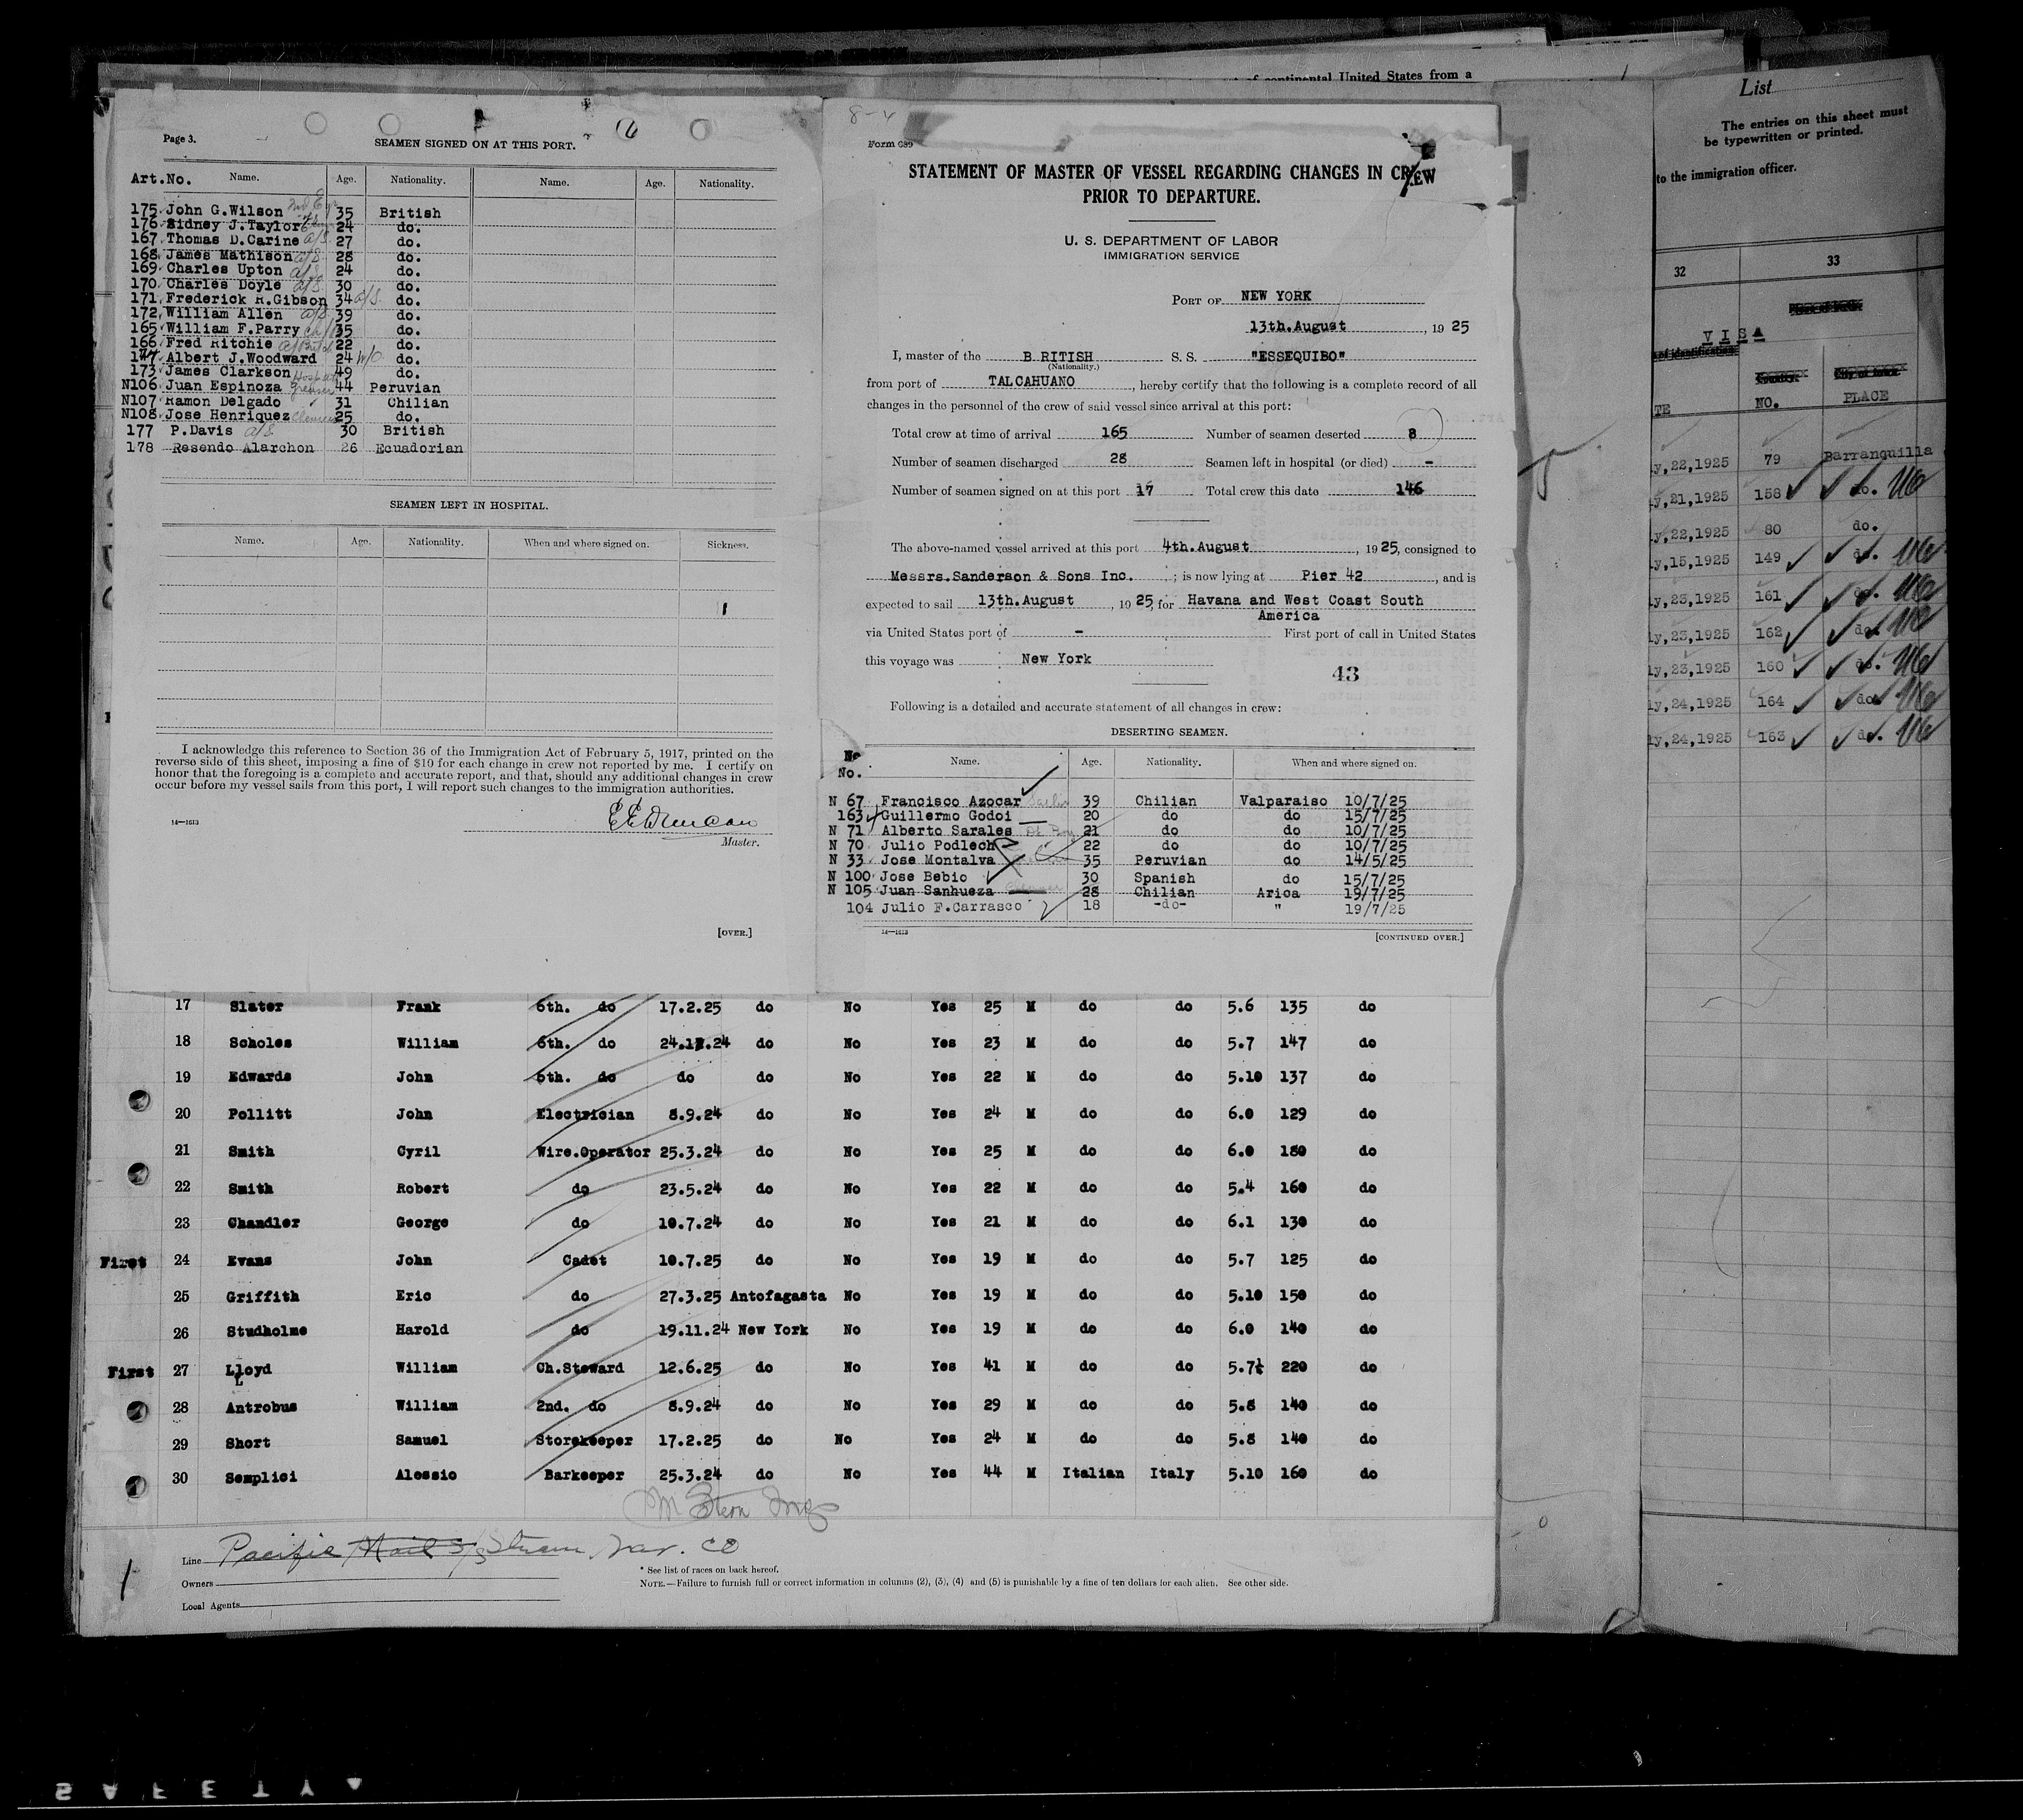 of continental United States from a
List
The entries on this sheet must
be typewritten or printed.
to the immigration officer.
Page 3.
SEAMEN SIGNED ON AT THIS PORT.
Art.No. Name. Age. Nationality. Name. Age. Nationality.
175 John G.Wilson 35 British
176 Sidney J.Taylor 24 do.
167 Thomas D.Carine a/s 27 do.
168 James Mathison a/s 28 do.
169 Charles Upton a/s 24 do.
170 Charles Doyle a/s 30 do.
171 Frederick R.Gibson 34 a/s do.
172 William Allen a/s 39 do.
165 William F.Parry 35 do.
166 Fred Ritchie 22 do.
174 Albert J.Woodward 24 W/O do.
173 James Clarkson 49 do.
N106 Juan Espinoza Greaser 44 Peruvian
N107 Ramon Delgado 31 Chilian
N108 Jose Henriquez 25 do.
177 P.Davis a/s 30 British
178 Resendo Alarchon 26 Ecuadorian
SEAMEN LEFT IN HOSPITAL.
Name. Age. Nationality. When and where signed on. Sickness.
I acknowledge this reference to Section 36 of the Immigration Act of February 5, 1917, printed on the
reverse side of this sheet, imposing a fine of $10 for each change in crew not reported by me. I certify on
honor that the foregoing is a complete and accurate report, and that, should any additional changes in crew
occur before my vessel sails from this port, I will report such changes to the immigration authorities.
14—1613
Master.
[OVER.]
8-4
Form 689
STATEMENT OF MASTER OF VESSEL REGARDING CHANGES IN CREW
PRIOR TO DEPARTURE.
U. S. DEPARTMENT OF LABOR
IMMIGRATION SERVICE
PORT OF NEW YORK
13th.August, 19 25
I, master of the B.RITISH S. S. "ESSEQUIBO"
(Nationality.)
from port of TALCAHUANO, hereby certify that the following is a complete record of all
changes in the personnel of the crew of said vessel since arrival at this port:
Total crew at time of arrival 165 Number of seamen deserted 8
Number of seamen discharged 28 Seamen left in hospital (or died) -
Number of seamen signed on at this port 17 Total crew this date 146
The above-named vessel arrived at this port 4th.August, 1925, consigned to
Messrs.Sanderson & Sons Inc. ; is now lying at Pier 42, and is
expected to sail 13th.August, 1925, for Havana and West Coast South
America
via United States port of - First port of call in United States
this voyage was New York
43
Following is a detailed and accurate statement of all changes in crew:
DESERTING SEAMEN.
No
No. Name. Age. Nationality. When and where signed on.
N 67 Francisco Azocar 39 Chilian Valparaiso 10/7/25
163 Guillermo Godoi 20 do do 15/7/25
N 71 Alberto Sarales 21 do do 10/7/25
N 70 Julio Podlech 22 do do 10/7/25
N 33 Jose Montalva 35 Peruvian do 14/5/25
N 100 Jose Bebio 30 Spanish do 15/7/25
N 105 Juan Sanhueza 28 Chilian Arica 19/7/25
104 Julio F.Carrasco 18 -do- " 19/7/25
14—1613
[CONTINUED OVER.]
32 33
VISA
Place of birth
of identification
Country. City or town
TE NO. PLACE
y,22,1925 79 Barranquilla
y,21,1925 158 do.
y,22,1925 80 do.
y,15,1925 149 do.
y,23,1925 161 do.
y,23,1925 162 do.
y,23,1925 160 do.
y,24,1925 164 do.
y,24,1925 163 do.
17 Slater Frank 6th. do 17.2.25 do No Yes 25 M do do 5.6 135 do
18 Scholes William 6th. do 24.12.24 do No Yes 23 M do do 5.7 147 do
19 Edwards John 6th. do do do No Yes 22 M do do 5.10 137 do
20 Pollitt John Electrician 8.9.24 do No Yes 24 M do do 6.0 129 do
21 Smith Cyril Wire.Operator 25.3.24 do No Yes 25 M do do 6.0 180 do
22 Smith Robert do 23.5.24 do No Yes 22 M do do 5.4 160 do
23 Chandler George do 10.7.24 do No Yes 21 M do do 6.1 130 do
First 24 Evans John Cadet 10.7.25 do No Yes 19 M do do 5.7 125 do
25 Griffith Eric do 27.3.25 Antofagasta No Yes 19 M do do 5.10 150 do
26 Studholme Harold do 19.11.24 New York No Yes 19 M do do 6.0 140 do
First 27 Lloyd William Ch.Steward 12.6.25 do No Yes 41 M do do 5.7½ 220 do
28 Antrobus William 2nd. do 8.9.24 do No Yes 29 M do do 5.8 140 do
29 Short Samuel Storekeeper 17.2.25 do No Yes 24 M do do 5.8 140 do
30 Semplici Alessio Barkeeper 25.3.24 do No Yes 44 M Italian Italy 5.10 160 do
M Stern Insp
Line Pacific Mail S/S Steam Nav. CO
Owners
Local Agents
* See list of races on back hereof.
NOTE.—Failure to furnish full or correct information in columns (2), (3), (4) and (5) is punishable by a fine of ten dollars for each alien. See other side.
SAFETY